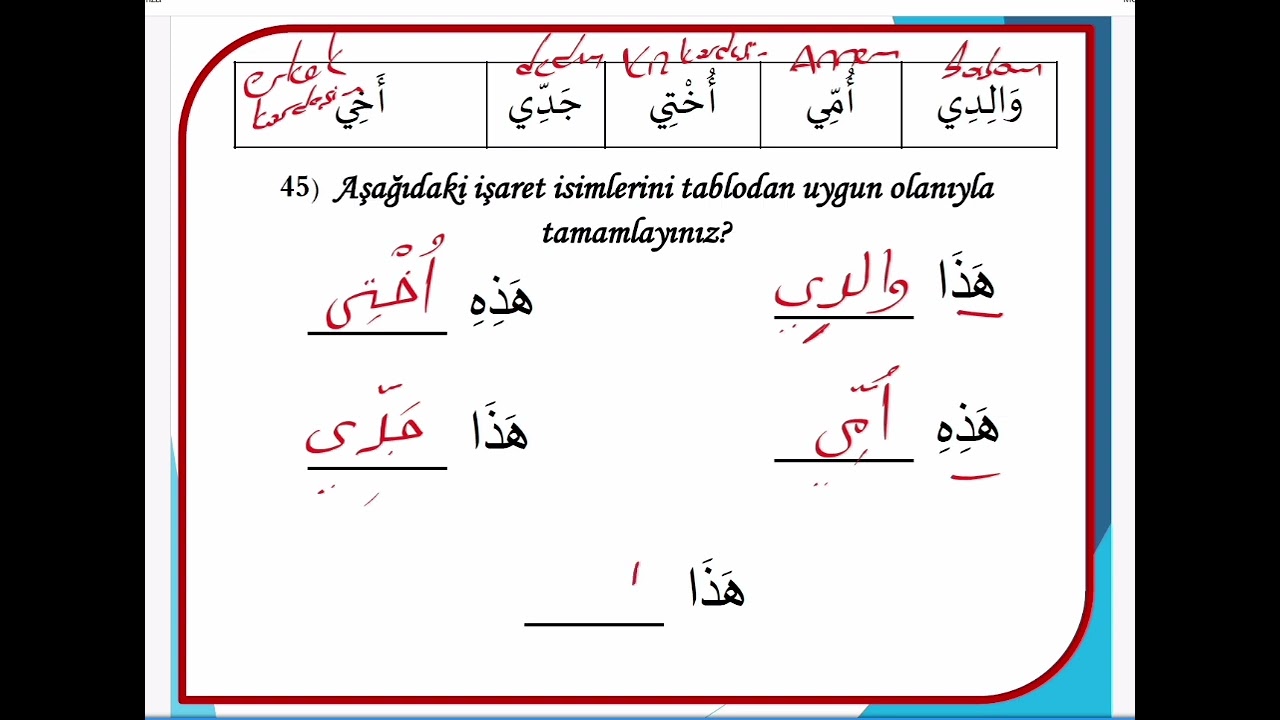 erkek kardeşim dedem kız kardeşim Annem babam
وَالِدِي أُمِّي أُخْتِي جَدِّي أَخِي
45) Aşağıdaki işaret isimlerini tablodan uygun olanıyla
tamamlayınız?
هَذَا والدي
هَذِهِ أُخْتِي
هَذِهِ أُمِّي
هَذَا جَدِّي
هَذَا ا